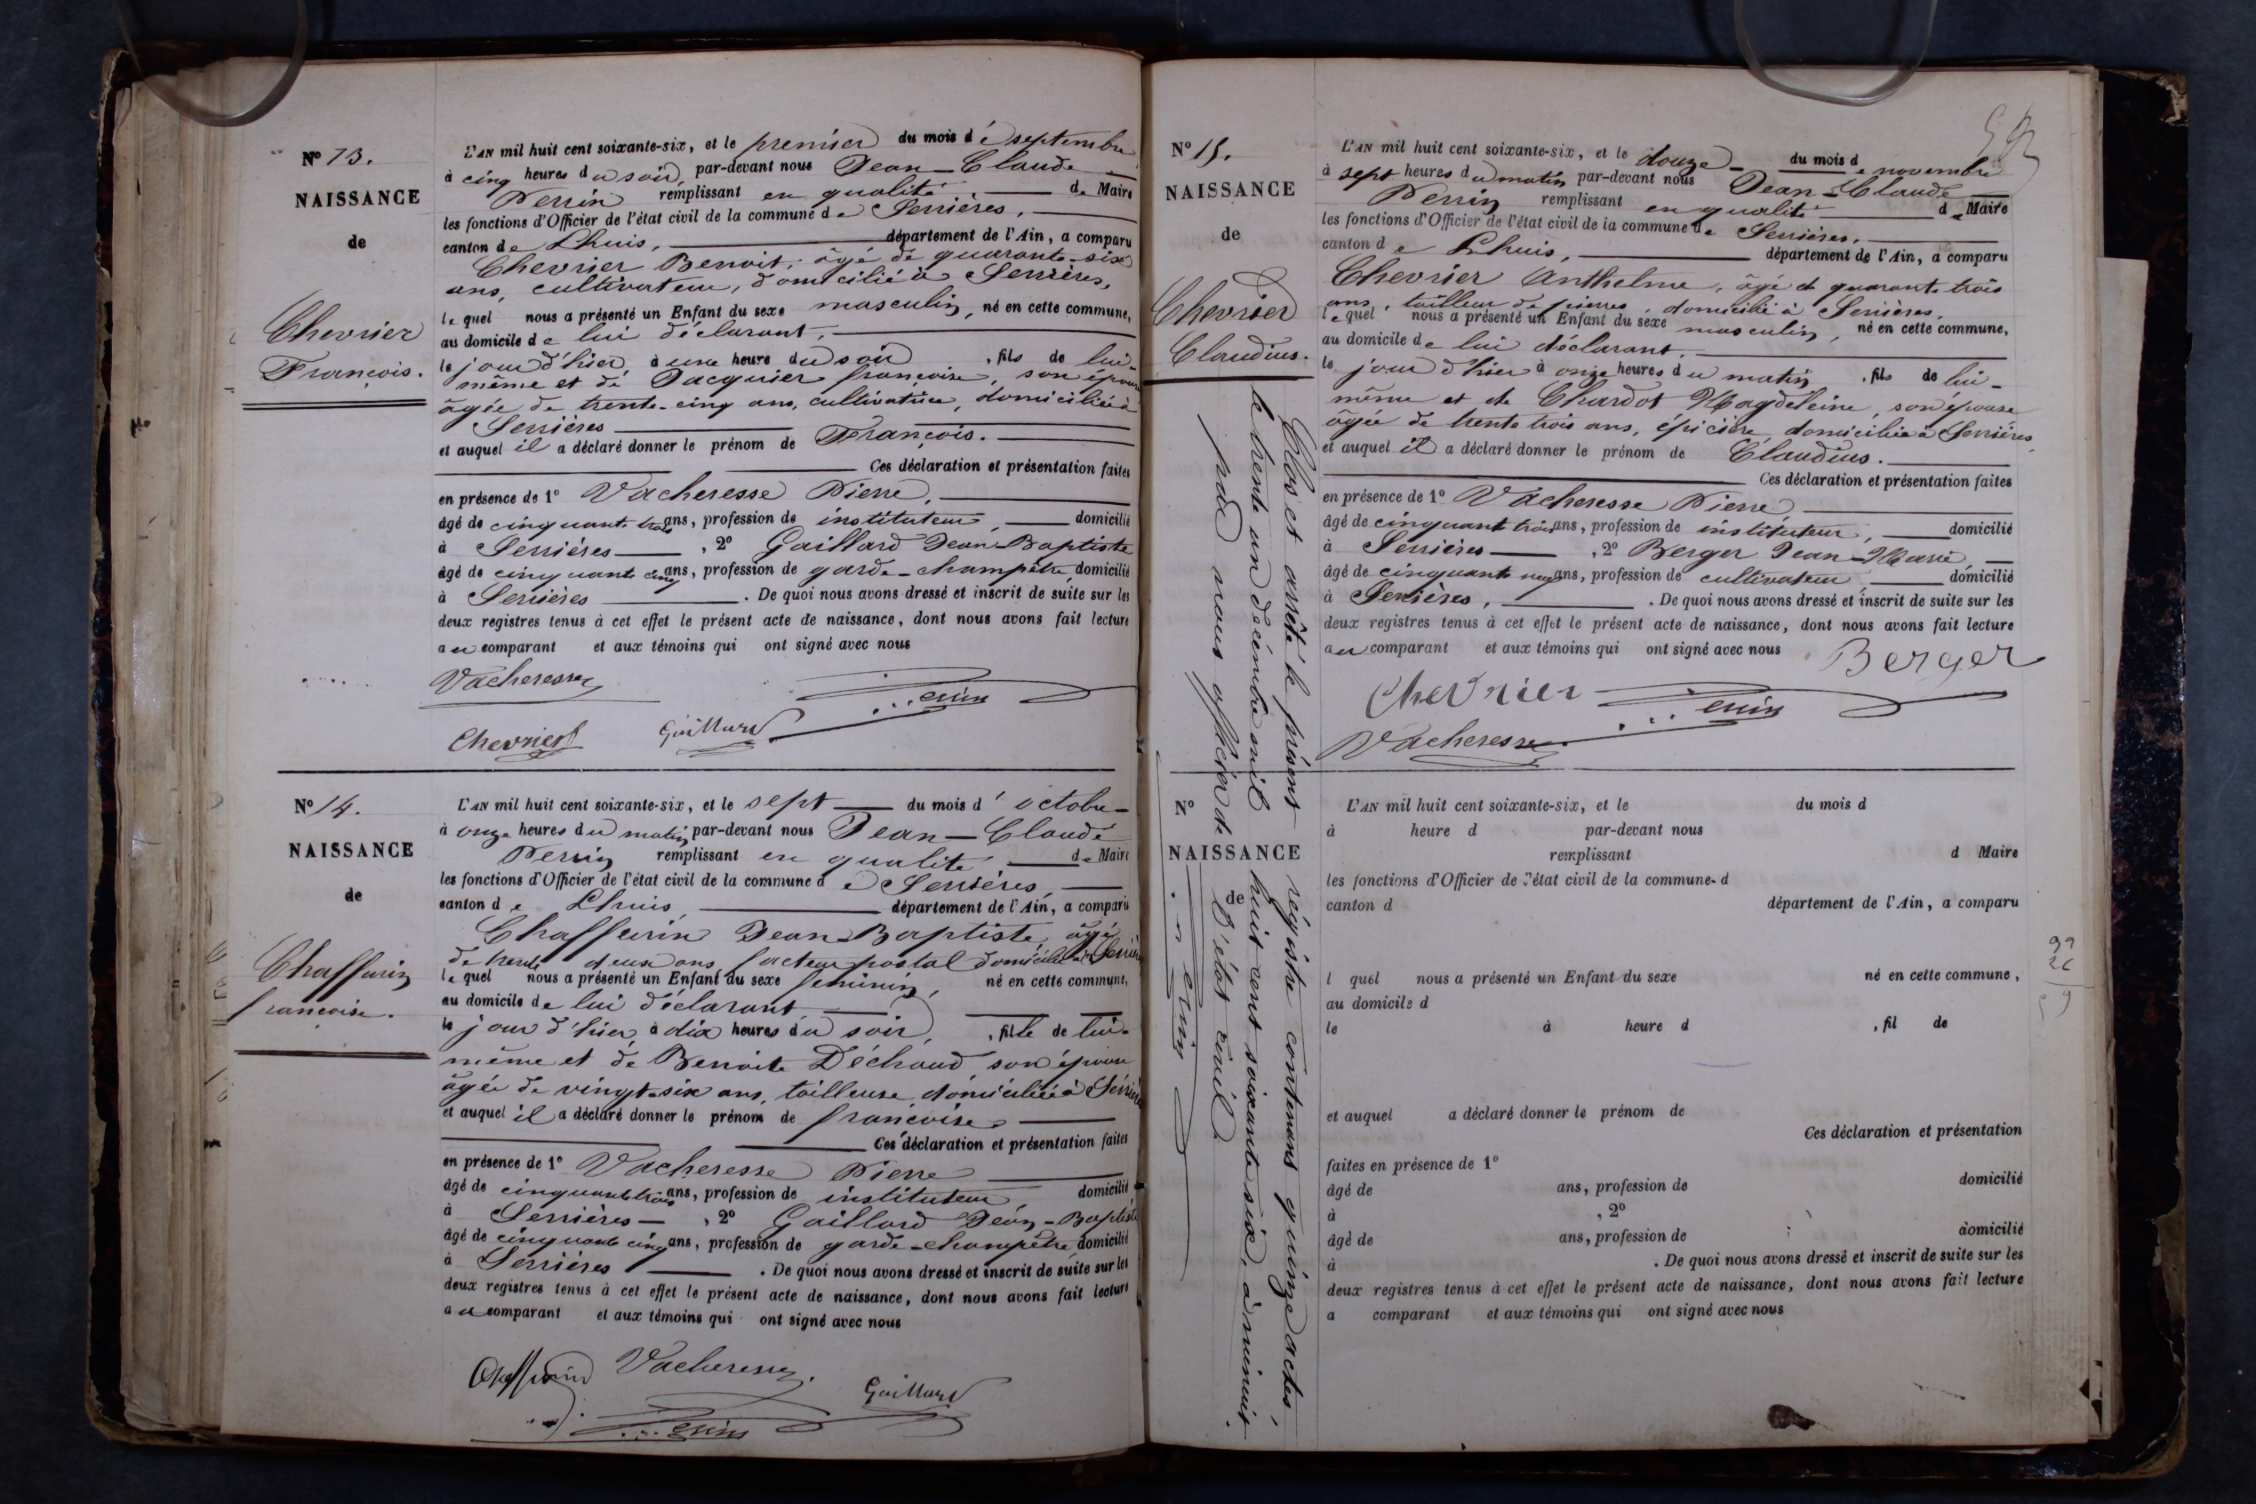 N° 13.
NAISSANCE
de
Chevrier
François.
L'AN mil huit cent soixante-six, et le premier du mois de septembre
à cinq heures du soir, par-devant nous Jean-Claude
Perrin remplissant en qualité de Maire
les fonctions d'Officier de l'état civil de la commune de Serrières,
canton de Lhuis, département de l'Ain, a comparu
Chevrier Benoit, âgé de quarante-six
ans, cultivateur, domicilié à Serrières,
lequel nous a présenté un Enfant du sexe masculin, né en cette commune,
au domicile de lui déclarant,
le jour d'hier, à une heure du soir, fils de lui-
même et de Jacquier françoise, son épouse
âgée de trente-cinq ans, cultivatrice, domiciliée à
Serrières
et auquel il a déclaré donner le prénom de François.
Ces déclaration et présentation faites
en présence de 1° Vacheresse Pierre,
âgé de cinquante trois ans, profession de instituteur, domicilié
à Serrières, 2° Gaillard Jean-Baptiste
âgé de cinquante cinq ans, profession de garde-champêtre, domicilié
à Serrières. De quoi nous avons dressé et inscrit de suite sur les
deux registres tenus à cet effet le présent acte de naissance, dont nous avons fait lecture
au comparant et aux témoins qui ont signé avec nous
Vacheresse
Perrin
Chevrier
Gaillard
N° 14.
NAISSANCE
de
Chaffurin
françoise.
L'AN mil huit cent soixante-six, et le sept du mois d'octobre
à onze heures du matin, par-devant nous Jean-Claude
Perrin remplissant en qualité de Maire
les fonctions d'Officier de l'état civil de la commune de Serrières,
canton de Lhuis, département de l'Ain, a comparu
Chaffurin Jean-Baptiste, âgé
de trente deux ans facteur postal domicilié à Serrières
lequel nous a présenté un Enfant du sexe féminin, né en cette commune,
au domicile de lui déclarant
le jour d'hier, à dix heures du soir, fille de lui-
même et de Benoite Déchaud, son épouse
âgée de vingt-six ans, tailleuse, domiciliée à Serrières
et auquel il a déclaré donner le prénom de françoise
Ces déclaration et présentation faites
en présence de 1° Vacheresse Pierre
âgé de cinquante trois ans, profession de instituteur, domicilié
à Serrières, 2° Gaillard Jean-Baptiste
âgé de cinquante cinq ans, profession de garde-champêtre, domicilié
à Serrières. De quoi nous avons dressé et inscrit de suite sur les
deux registres tenus à cet effet le présent acte de naissance, dont nous avons fait lecture
au comparant et aux témoins qui ont signé avec nous
Chaffurin Vacheresse
Gaillard
Perrin
N° 15.
NAISSANCE
de
Chevrier
Claudius.
L'AN mil huit cent soixante-six, et le douze du mois de novembre
à sept heures du matin, par-devant nous Jean-Claude
Perrin remplissant en qualité de Maire
les fonctions d'Officier de l'état civil de la commune de Serrières,
canton de Lhuis, département de l'Ain, a comparu
Chevrier Anthelme, âgé de quarante trois
ans, tailleur de pierres, domicilié à Serrières.
lequel nous a présenté un Enfant du sexe masculin, né en cette commune,
au domicile de lui déclarant.
le jour d'hier à onze heures du matin, fils de lui-
même et de Chardot Magdeleine, son épouse
âgée de trente trois ans, épicière, domiciliée à Serrières,
et auquel il a déclaré donner le prénom de Claudius.
Ces déclaration et présentation faites
en présence de 1° Vacheresse Pierre,
âgé de cinquante trois ans, profession de instituteur, domicilié
à Serrières, 2° Berger Jean-Marie,
âgé de cinquante neuf ans, profession de cultivateur, domicilié
à Serrières, . De quoi nous avons dressé et inscrit de suite sur les
deux registres tenus à cet effet le présent acte de naissance, dont nous avons fait lecture
au comparant et aux témoins qui ont signé avec nous
Berger
Chevrier
Perrin
Vacheresse
Clos et arrêté le présent régistre contenant quinze actes,
le trente un décembre mil huit cent soixante six, à minuit.
par nous officier de l'état civil
Perrin
N°
NAISSANCE
de
L'AN mil huit cent soixante-six, et le du mois d
à heure d par-devant nous
remplissant d Maire
les fonctions d'Officier de l'état civil de la commune d
canton d département de l'Ain, a comparu
l quel nous a présenté un Enfant du sexe né en cette commune,
au domicile d
le à heure d , fil de
et auquel a déclaré donner le prénom de
Ces déclaration et présentation
faites en présence de 1°
âgé de ans, profession de domicilié
à , 2°
âgé de ans, profession de domicilié
à . De quoi nous avons dressé et inscrit de suite sur les
deux registres tenus à cet effet le présent acte de naissance, dont nous avons fait lecture
a comparant et aux témoins qui ont signé avec nous